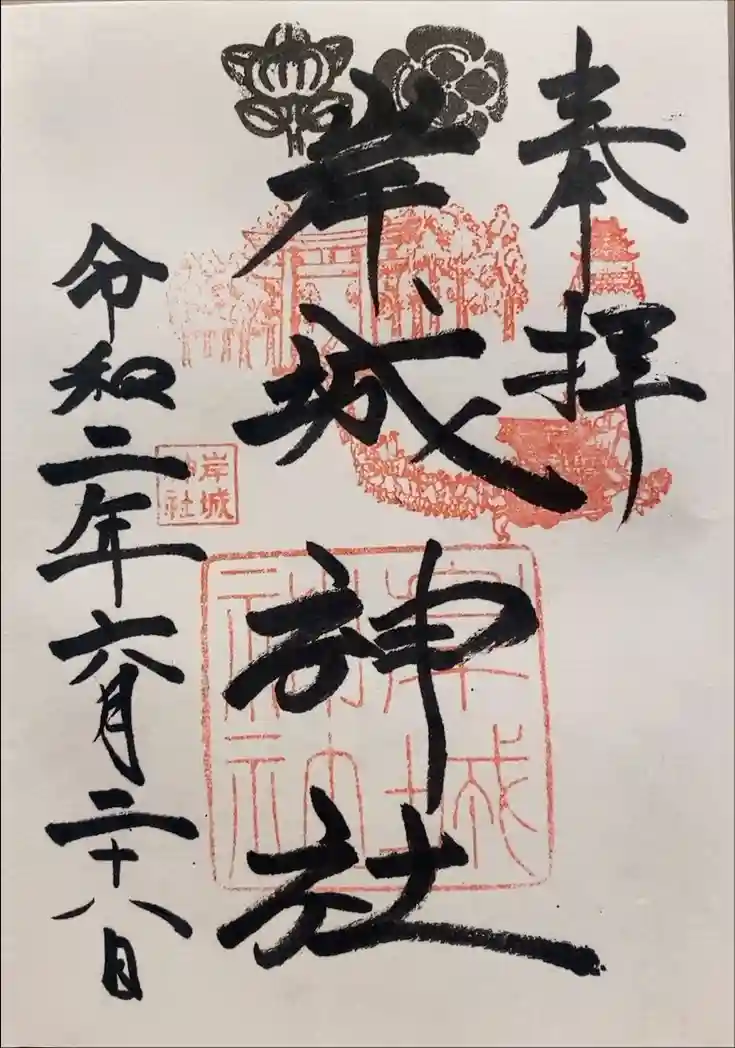 奉拝
岸城神社
令和二年六月二十八日
岸城
神社
岸城
神社